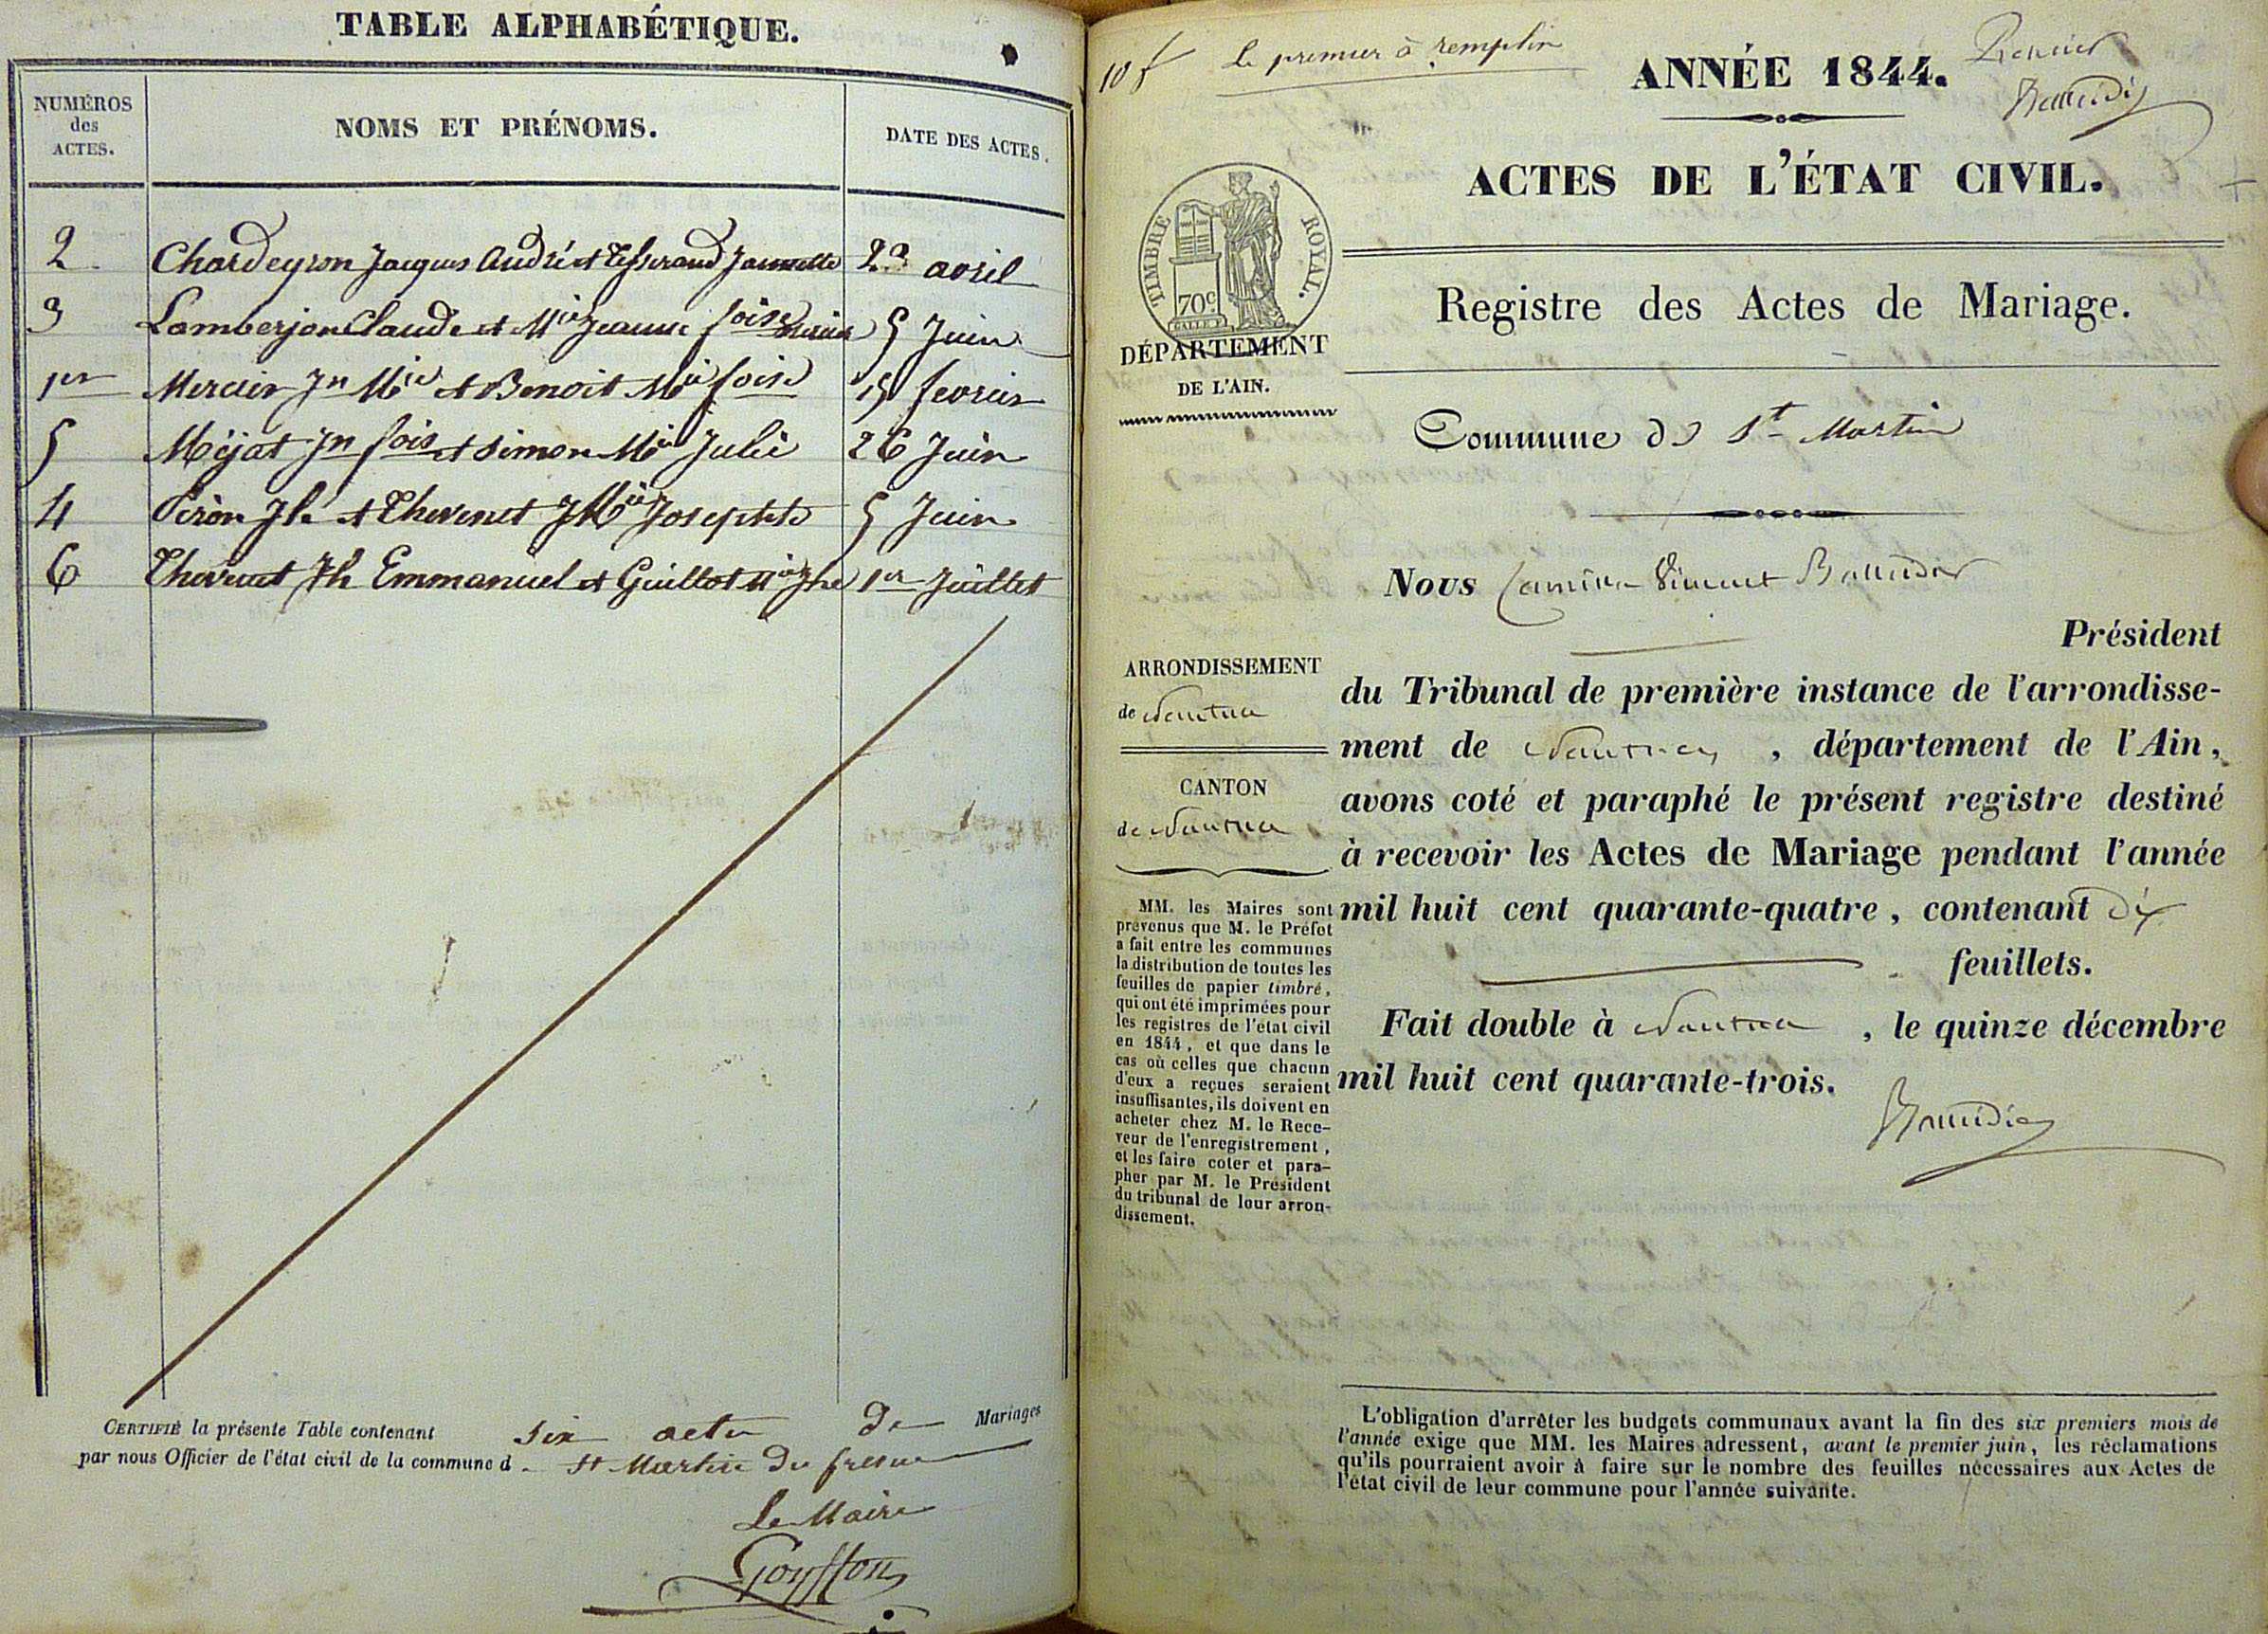 TABLE ALPHABÉTIQUE.
NUMÉROS
des
ACTES.
NOMS ET PRÉNOMS.
DATE DES ACTES.
2 Chardeyron Jacques André et Tisserand Jeannette avril
3 Lamberjon Claude et Mie Jeanne foise 5 Juin
1er Mercier Jn Mie et Benoit Mie foise 15 fevrier
5 Méjat Jn fois et Simon Mie Julie 26 Juin
4 Piron Jh et Thevenet Mie Josephte 5 Juin
6 Thevenet Jh Emmanuel et Guillot Mie Jhe 1er Juillet
CERTIFIÉ la présente Table contenant six actes de Mariages
par nous Officier de l'état civil de la commune d St Martin du fresne
Le Maire
Goyffon
10 f
le premier à remplir
ANNÉE 1844.
Premier
Baudier
ACTES DE L'ÉTAT CIVIL.
TIMBRE ROYAL.
70c
DÉPARTEMENT
DE L'AIN.
Registre des Actes de Mariage.
Commune de St Martin
Nous Camille Vincent Baudier
Président
du Tribunal de première instance de l'arrondisse-
ment de Nantua, département de l'Ain,
avons coté et paraphé le présent registre destiné
à recevoir les Actes de Mariage pendant l'année
mil huit cent quarante-quatre, contenant dix
feuillets.
Fait double à Nantua, le quinze décembre
mil huit cent quarante-trois.
Baudier
ARRONDISSEMENT
de Nantua
CANTON
de Nantua
MM. les Maires sont
prévenus que M. le Préfet
a fait entre les communes
la distribution de toutes les
feuilles de papier timbré,
qui ont été imprimées pour
les registres de l'état civil
en 1844, et que dans le
cas où celles que chacun
d'eux a reçues seraient
insuffisantes, ils doivent en
acheter chez M. le Rece-
veur de l'enregistrement,
et les faire coter et para-
pher par M. le Président
du tribunal de leur arron-
dissement.
L'obligation d'arrêter les budgets communaux avant la fin des six premiers mois de
l'année exige que MM. les Maires adressent, avant le premier juin, les réclamations
qu'ils pourraient avoir à faire sur le nombre des feuilles nécessaires aux Actes de
l'état civil de leur commune pour l'année suivante.